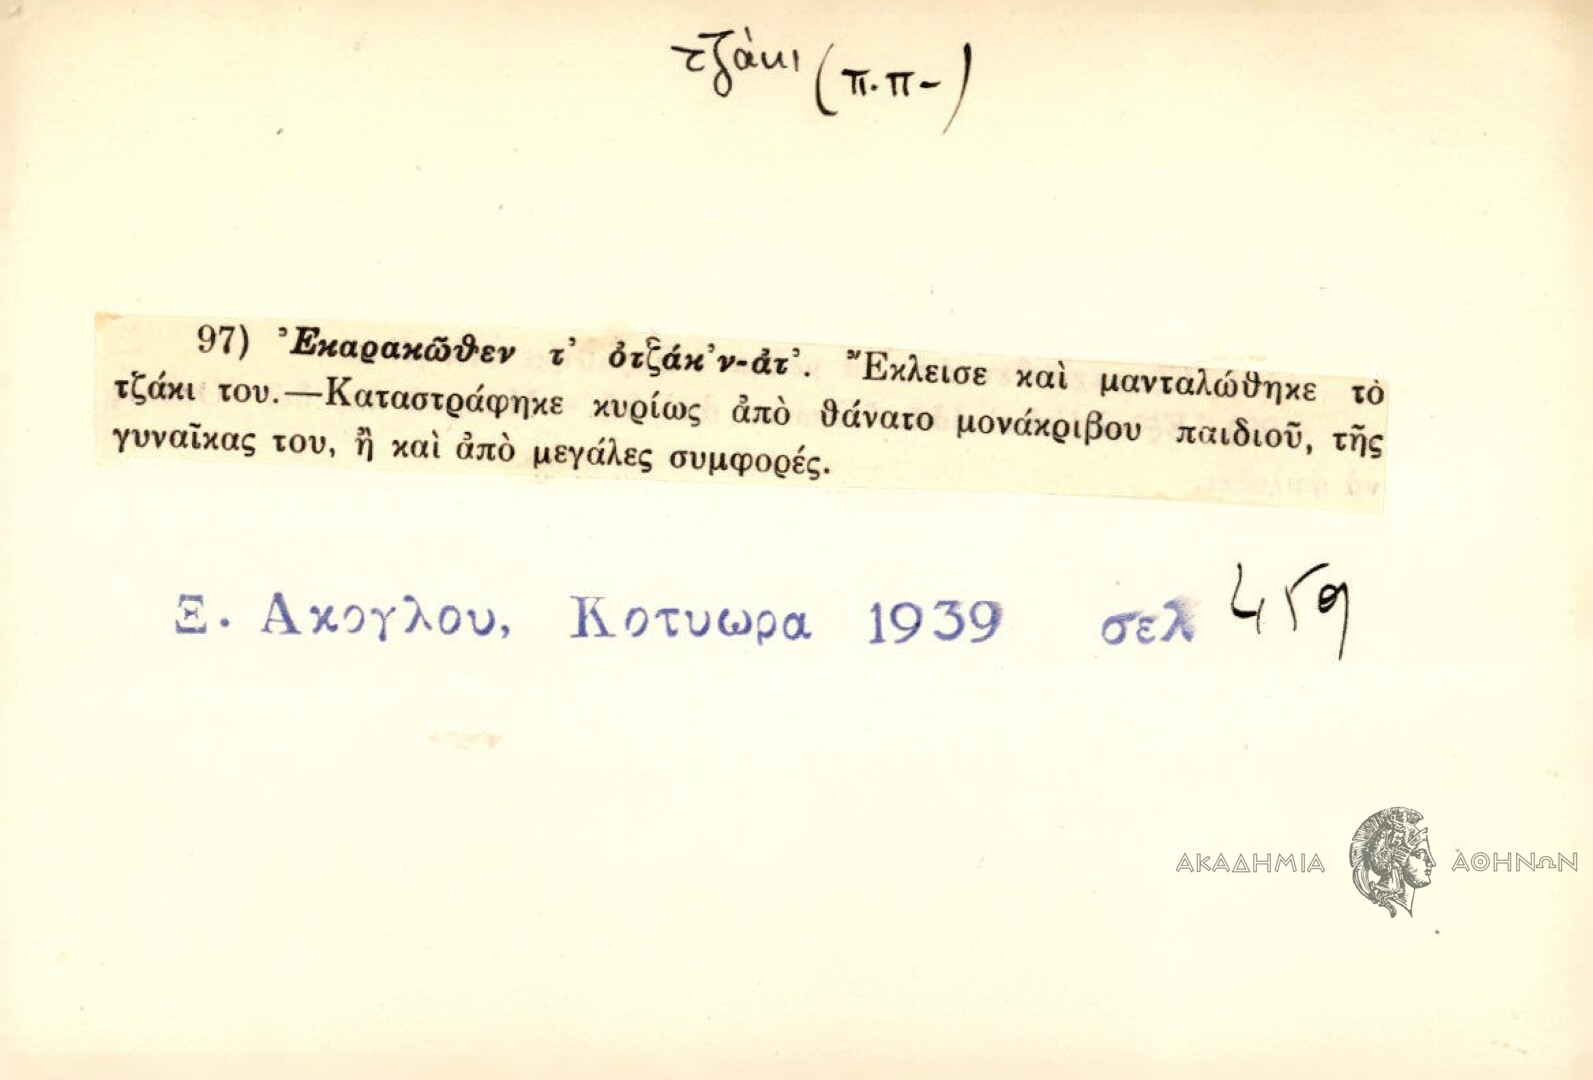 τζάκι (π.π-)
97) Ἐκαρακῶθεν τ' ὀτζάκ'ν-ἀτ'. Ἔκλεισε καὶ μανταλώθηκε τὸ
τζάκι του.—Καταστράφηκε κυρίως ἀπὸ θάνατο μονάκριβου παιδιοῦ, τῆς
γυναῖκας του, ἢ καὶ ἀπὸ μεγάλες συμφορές.
Ξ. Ακογλου, Κοτυωρα 1939 σελ 459
ΑΚΑΔΗΜΙΑ ΑΘΗΝΩΝ